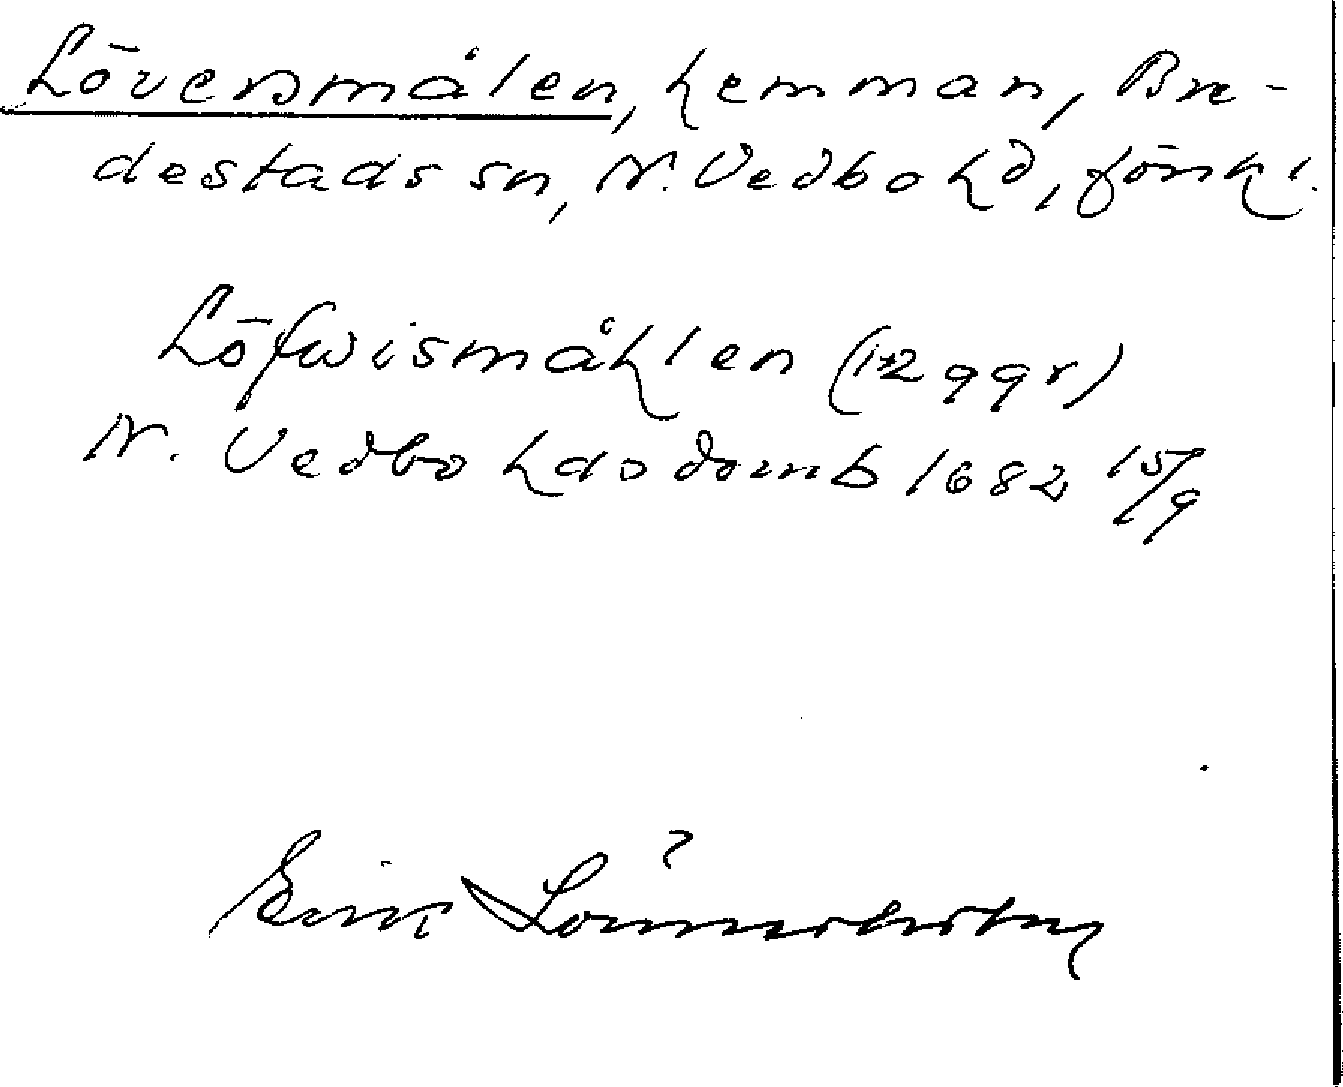 Löversmålen, hemman, Bre-
destads sn, N. Vedbo hd, Jönk l.
Löfwismåhlen (12 ggr)
N. Vedbo hds domb 1682 15/9
Erik